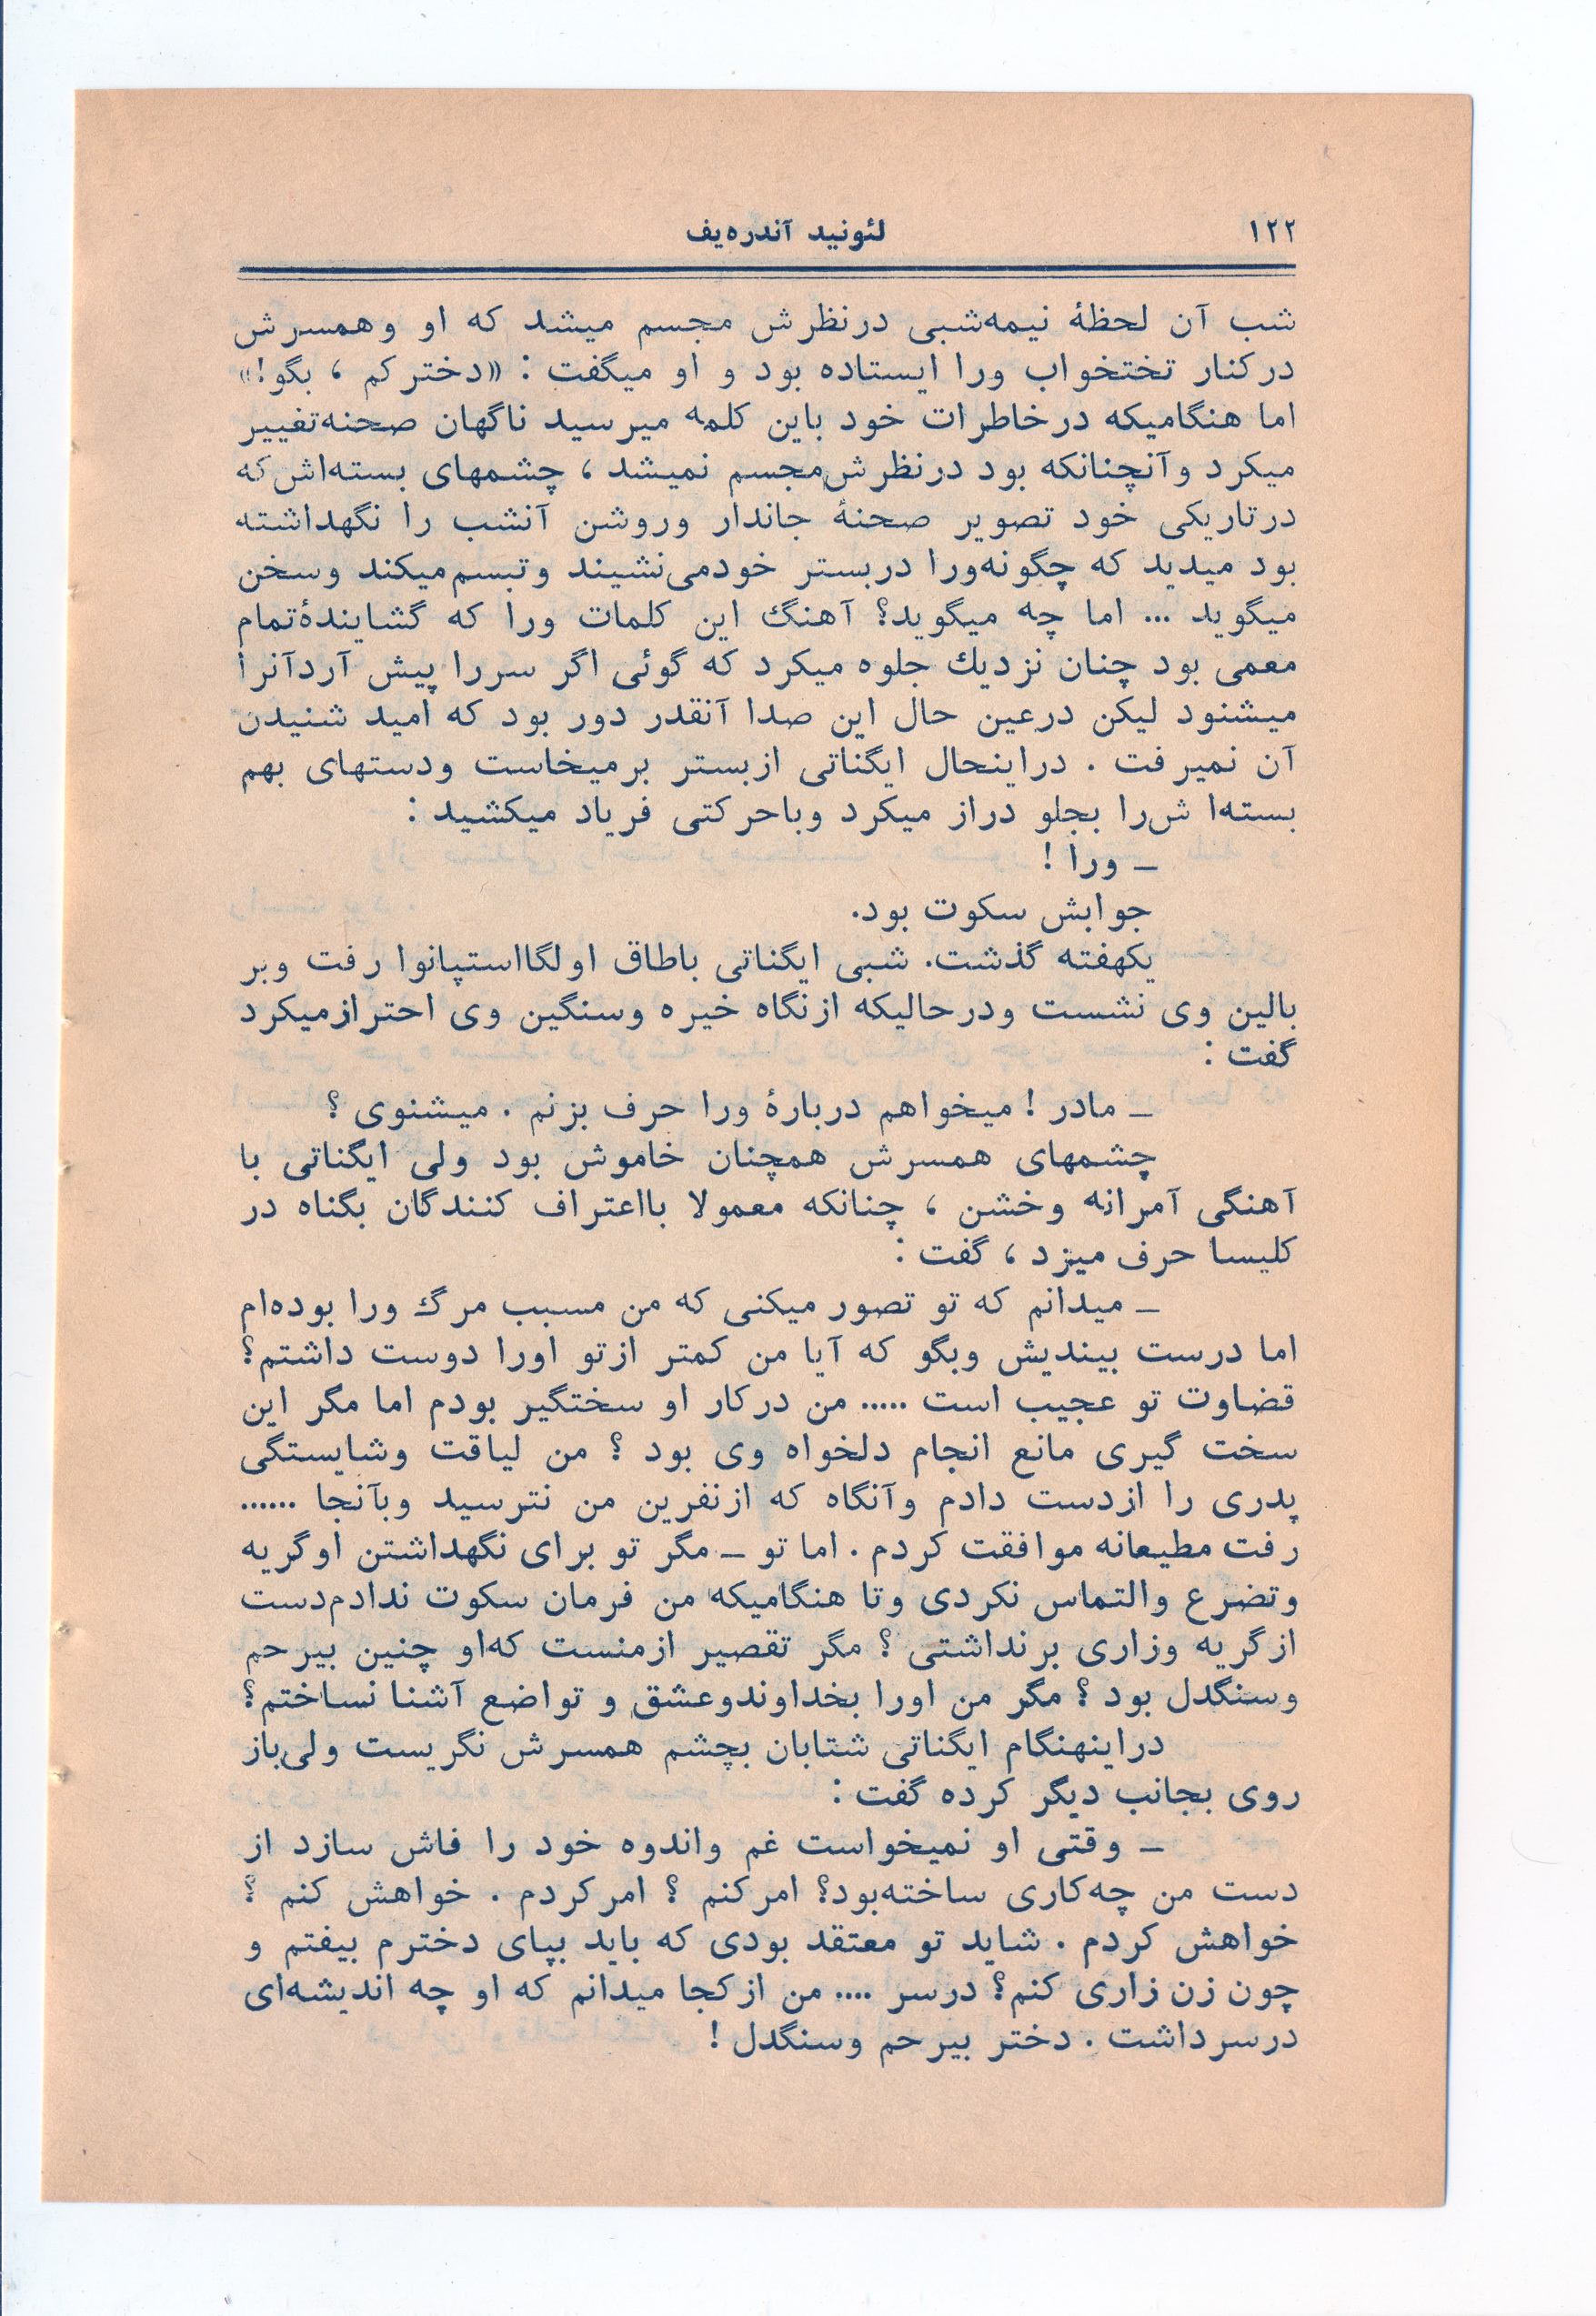 ۱۲۲
لئونید آندره‌یف
شب آن لحظهٔ نیمه‌شبی درنظرش مجسم میشد که او وهمسرش
درکنار تختخواب ورا ایستاده بود و او میگفت : «دخترکم ، بگو!»
اما هنگامیکه درخاطرات خود باین کلمه میرسید ناگهان صحنه‌تغییر
میکرد وآنچنانکه بود درنظرش‌مجسم نمیشد ، چشمهای بسته‌اش‌که
درتاریکی خود تصویر صحنهٔ جاندار وروشن آنشب را نگهداشته
بود میدید که چگونه‌ورا دربستر خودمی‌نشیند وتبسم‌میکند وسخن
میگوید ... اما چه میگوید؟ آهنگ این کلمات ورا که گشایندهٔ‌تمام
معمی بود چنان نزدیك جلوه میکرد که گوئی اگر سررا پیش آردآنرا
میشنود لیکن درعین حال این صدا آنقدر دور بود که امید شنیدن
آن نمیرفت . دراینحال ایگناتی ازبستر برمیخاست ودستهای بهم
بسته‌اش‌را بجلو دراز میکرد وباحرکتی فریاد میکشید :
ـ ورا !
جوابش سکوت بود.
یکهفته گذشت. شبی ایگناتی باطاق اولگااستپانوا رفت وبر
بالین وی نشست ودرحالیکه ازنگاه خیره وسنگین وی احترازمیکرد
گفت :
ـ مادر ! میخواهم دربارهٔ ورا حرف بزنم . میشنوی ؟
چشمهای همسرش همچنان خاموش بود ولی ایگناتی با
آهنگی آمرانه وخشن ، چنانکه معمولا بااعتراف کنندگان بگناه در
کلیسا حرف میزد ، گفت :
ـ میدانم که تو تصور میکنی که من مسبب مرگ ورا بوده‌ام
اما درست بیندیش وبگو که آیا من کمتر ازتو اورا دوست داشتم؟
قضاوت تو عجیب است ..... من درکار او سختگیر بودم اما مگر این
سخت گیری مانع انجام دلخواه وی بود ؟ من لیاقت وشایستگی
پدری را ازدست دادم وآنگاه که ازنفرین من نترسید وبآنجا ......
رفت مطیعانه موافقت کردم . اما تو ـ مگر تو برای نگهداشتن اوگریه
وتضرع والتماس نکردی وتا هنگامیکه من فرمان سکوت ندادم‌دست
ازگریه وزاری برنداشتی ؟ مگر تقصیر ازمنست که‌او چنین بیرحم
وسنگدل بود ؟ مگر من اورا بخداوندوعشق و تواضع آشنا نساختم؟
دراینهنگام ایگناتی شتابان بچشم همسرش نگریست ولی‌باز
روی بجانب دیگر کرده گفت :
ـ وقتی او نمیخواست غم واندوه خود را فاش سازد از
دست من چه‌کاری ساخته‌بود؟ امرکنم ؟ امرکردم . خواهش کنم ؟
خواهش کردم . شاید تو معتقد بودی که باید بپای دخترم بیفتم و
چون زن زاری کنم؟ درسر .... من ازکجا میدانم که او چه اندیشه‌ای
درسرداشت . دختر بیرحم وسنگدل !